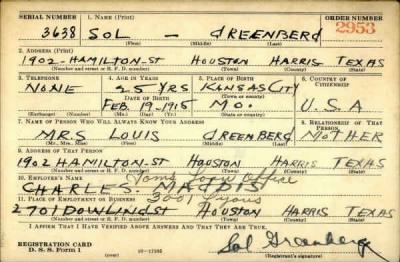 SERIAL NUMBER 1. Name (Print) ORDER NUMBER
3638 SOL — GREENBERG 2953
(First) (Middle) (Last)
2. Address (Print)
1902-HAMILTON-ST HOUSTON HARRIS TEXAS
(Number and street or R. F. D. number) (Town) (County) (State)
3. Telephone 4. Age in Years 5. Place of Birth 6. Country of Citizenship
NONE 25 YRS KANSAS CITY
Date of Birth (Town or county)
FEB 19 1915 MO. U.S.A
(Exchange) (Number) (Mo.) (Day) (Yr.) (State or country)
7. Name of Person Who Will Always Know Your Address 8. Relationship of That Person
MRS LOUIS GREENBERG MOTHER
(Mr., Mrs., Miss) (First) (Middle) (Last)
9. Address of That Person
1902 HAMILTON-ST HOUSTON HARRIS TEXAS
(Number and street or R. F. D. number) (Town) (County) (State)
10. Employer's Name Toms Loan Office
CHARLES.
11. Place of Employment or Business 3001
2701 DOWLING ST HOUSTON HARRIS TEXAS
(Number and street or R. F. D. number) (Town) (County) (State)
I Affirm That I Have Verified Above Answers and That They Are True.
REGISTRATION CARD
D. S. S. Form 1 (over) Sol Greenberg
(Registrant's signature)